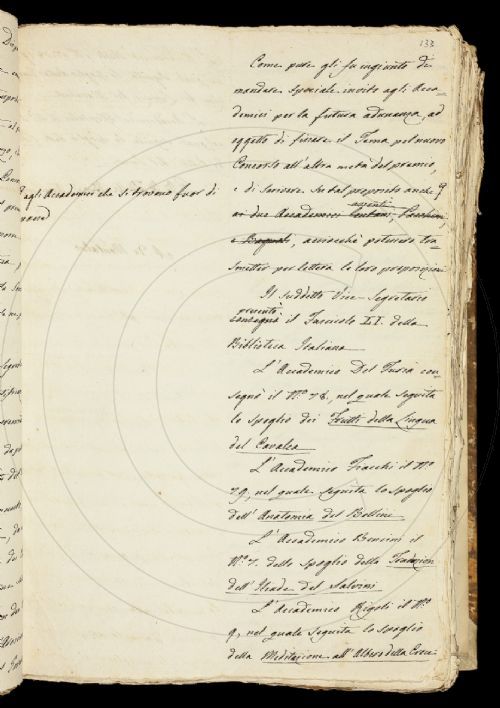 133
Come pure gli fu ingiunto di
mandare speciale invito agli Acca-
demici per la futura adunanza, ad
oggetto di fissare il Tema pel nuovo
Concorso all'altra metà del premio,
e di scrivere sul tal proposito anche
agli Accademici che si trovano fuor di
ai due Accademici
assenti
e acciocchè potessero tra-
smetter per lettera le loro proposizioni
Il suddetto Vice-Segretario
presentò
consegnò il Fascicolo II. della
Biblioteca Italiana
L'Accademico Del Furia con-
segnò il N.º 78, nel quale seguita
lo spoglio dei Frutti della Lingua
del Cavalca
L'Accademico Fiacchi il N.º
29, nel quale seguita lo spoglio
dell'Anatomia del Bellini
L'Accademico Bencini il
N.º 7. dello spoglio della Traduzion
dell'Iliade del Salvini
L'Accademico Rigoli il N.º
9, nel quale seguita lo spoglio
della Meditazione all'Albero della Croce